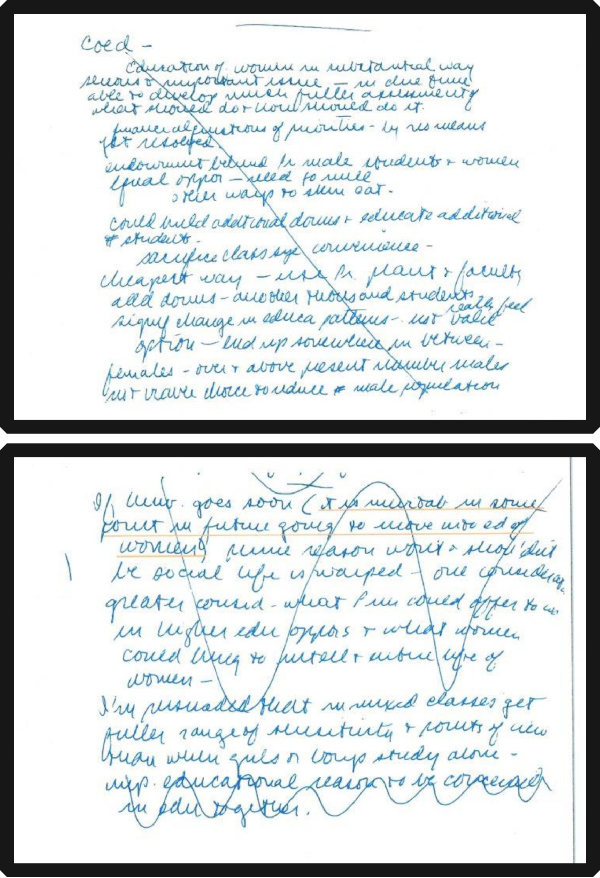 Coed -
Education of women in substantial way
serious & important issue - in due time
able to develop much fuller assessment of
what should do & how should do it.
financial questions of priorities - by no means
yet resolved
endowment behind Pr male students & women
equal oppor - need so much
other ways to skin cat.
could build additional dorms & educate additional
# students.
sacrifice class size convenience -
cheapest way - use Pr. plant & faculty
add dorms - another thousand students
really feel
signif change in educa patterns - not valid
option - end up somewhere in between -
females - over & above present number males
not viable choice to reduce # male population
If Univ. goes soon (it is inevitab in some
point in future going to move into ed of
women) prime reason won't & shouldn't
be social life is warped - one consideration
greater consid - what Prin could offer to
in higher edu oppors & what women
could bring to intell & entire life of
women -
I'm persuaded that in mixed classes get
fuller range of sensitivity & points of view
than when girls or boys study alone -
imp. educational reason to be
in edu together.